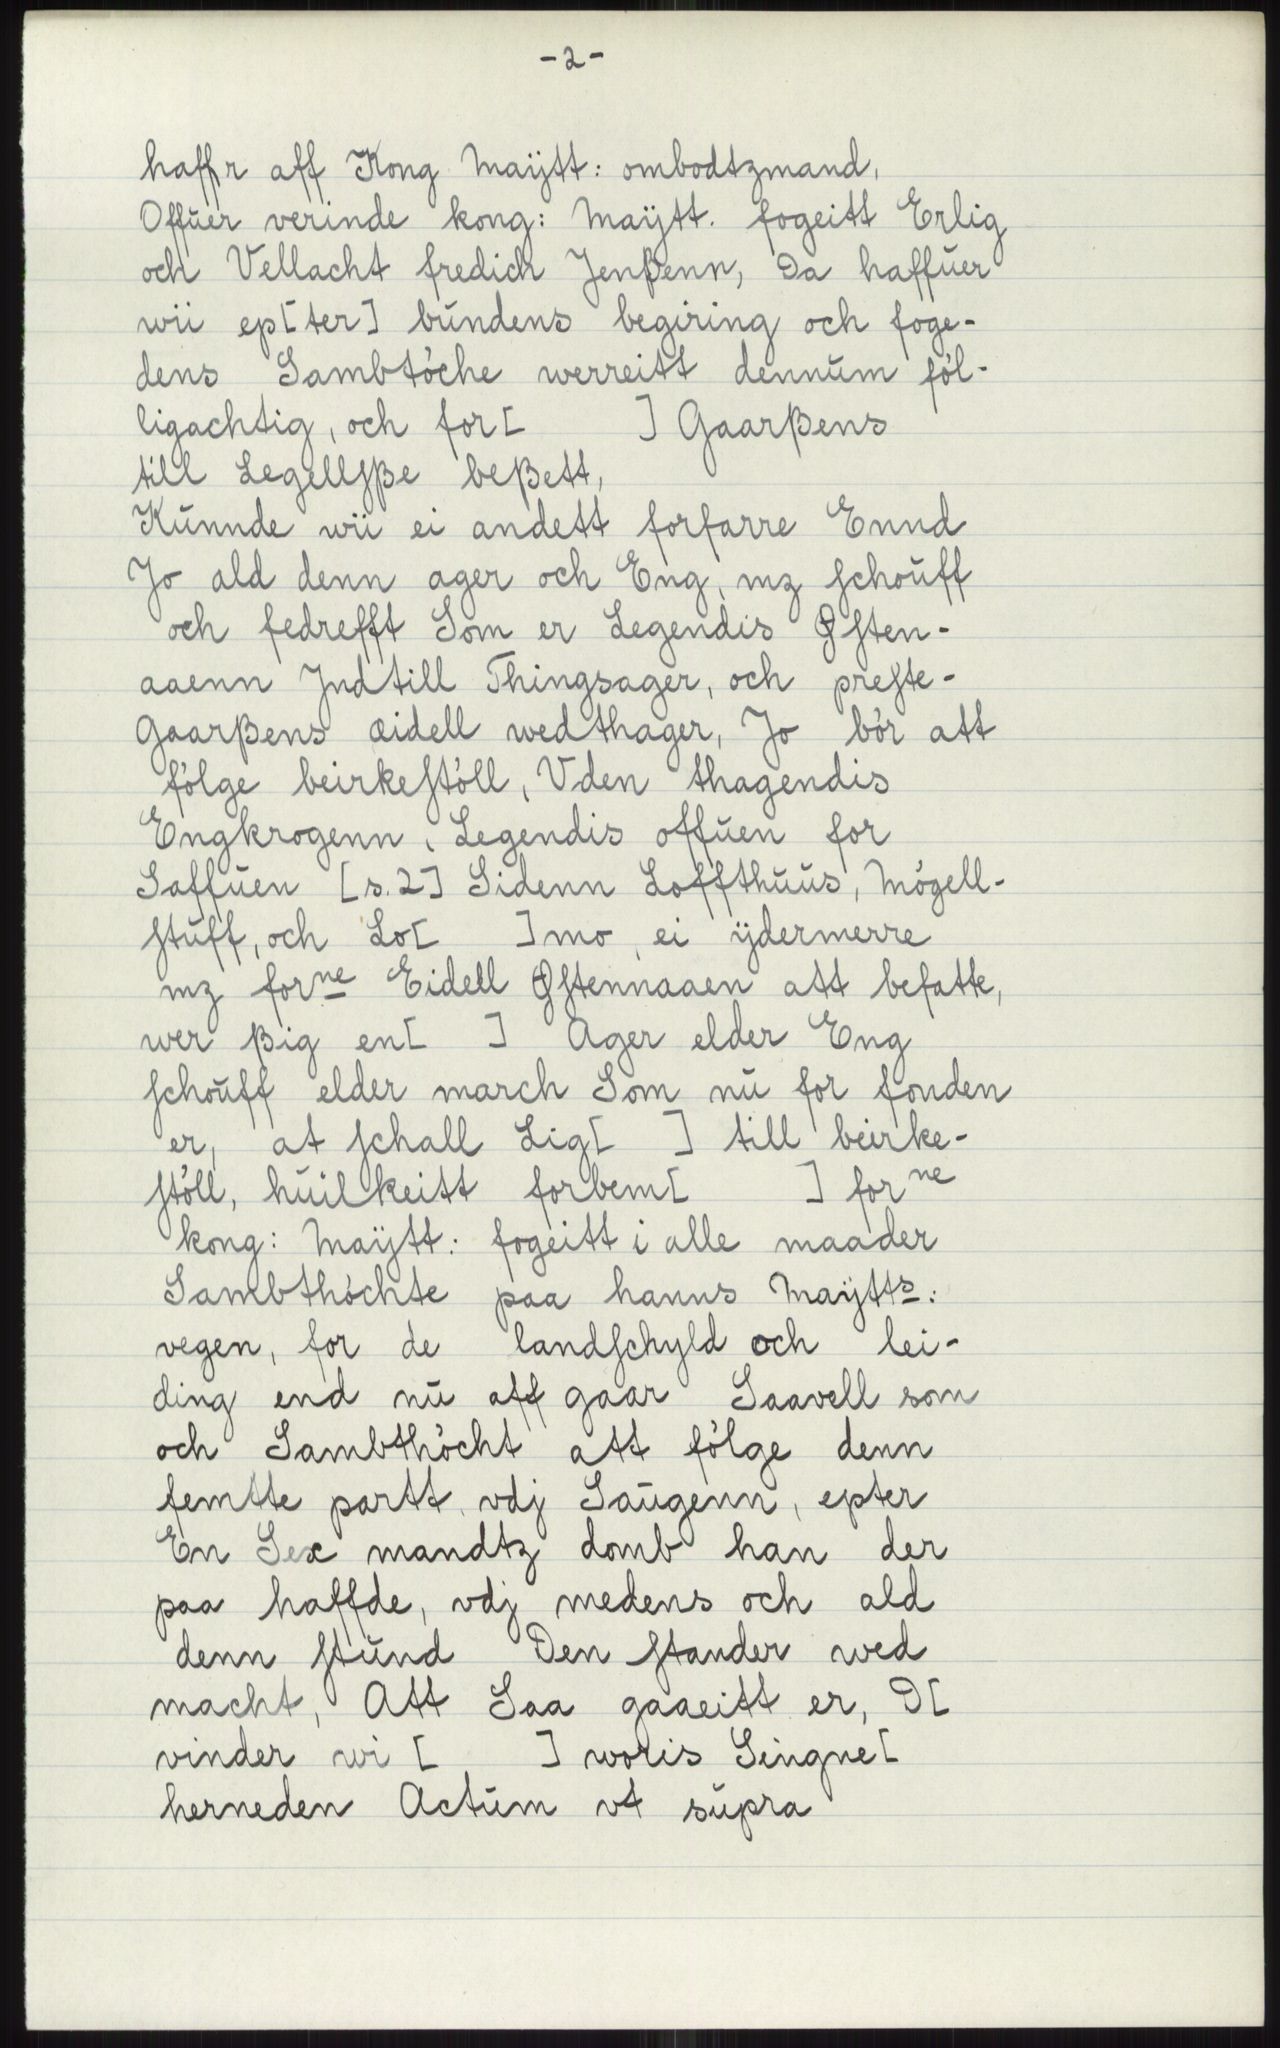 -2-
haffr aff Kong Maÿtt: ombodtzmand,
Offuer verinde kong: Maÿtt. fogeitt Erlig
och Vellacht fredich Jenßenn, Da haffuer
wii ep[ter] bundens begiring och foge-
dens Sambtöche werreitt dennum föl-
ligachtig, och for[ ] Gaarßens
till Legellsße beßett,
Kunnde wii ei andett forfarre Ennd
Jo ald denn ager och Eng, mz schouff
och fedrefft Som er Legendis Østen-
aaenn Jndtill Thingsager, och preste-
Gaarßens æidell wedthager, Jo bör att
fölge beirkestöll, Vden thagendis
Engkrogenn, Legendis offuen for
Saffuen [s.2] Sidenn Loffthuus, Mögell-
stuff, och Lo[ ]mo, ei ÿdermerre
mz forne Eidell Østennaaen att befatte,
wer ßig en[ ] Ager elder Eng
schouff elder march Som nu for fonden
er, at schall Lig[ ] till beirke-
stöll, huilkeitt forbem[ ] forne
kong: Maÿtt: fogeitt i alle maader
Sambthöchte paa hanns Maÿtts:
vegen, for de landschyld och lei-
ding end nu aff gaar Saavell som
och Sambthöcht att fölge denn
femtte partt vdj Saugenn, epter
En Sex mandtz domb han der
paa haffde, vdj medens och ald
denn stund Den stander wed
macht, Att Saa gaaeitt er, D[
vinder wi [ ] woris Singne[
herneden Actum vt supra